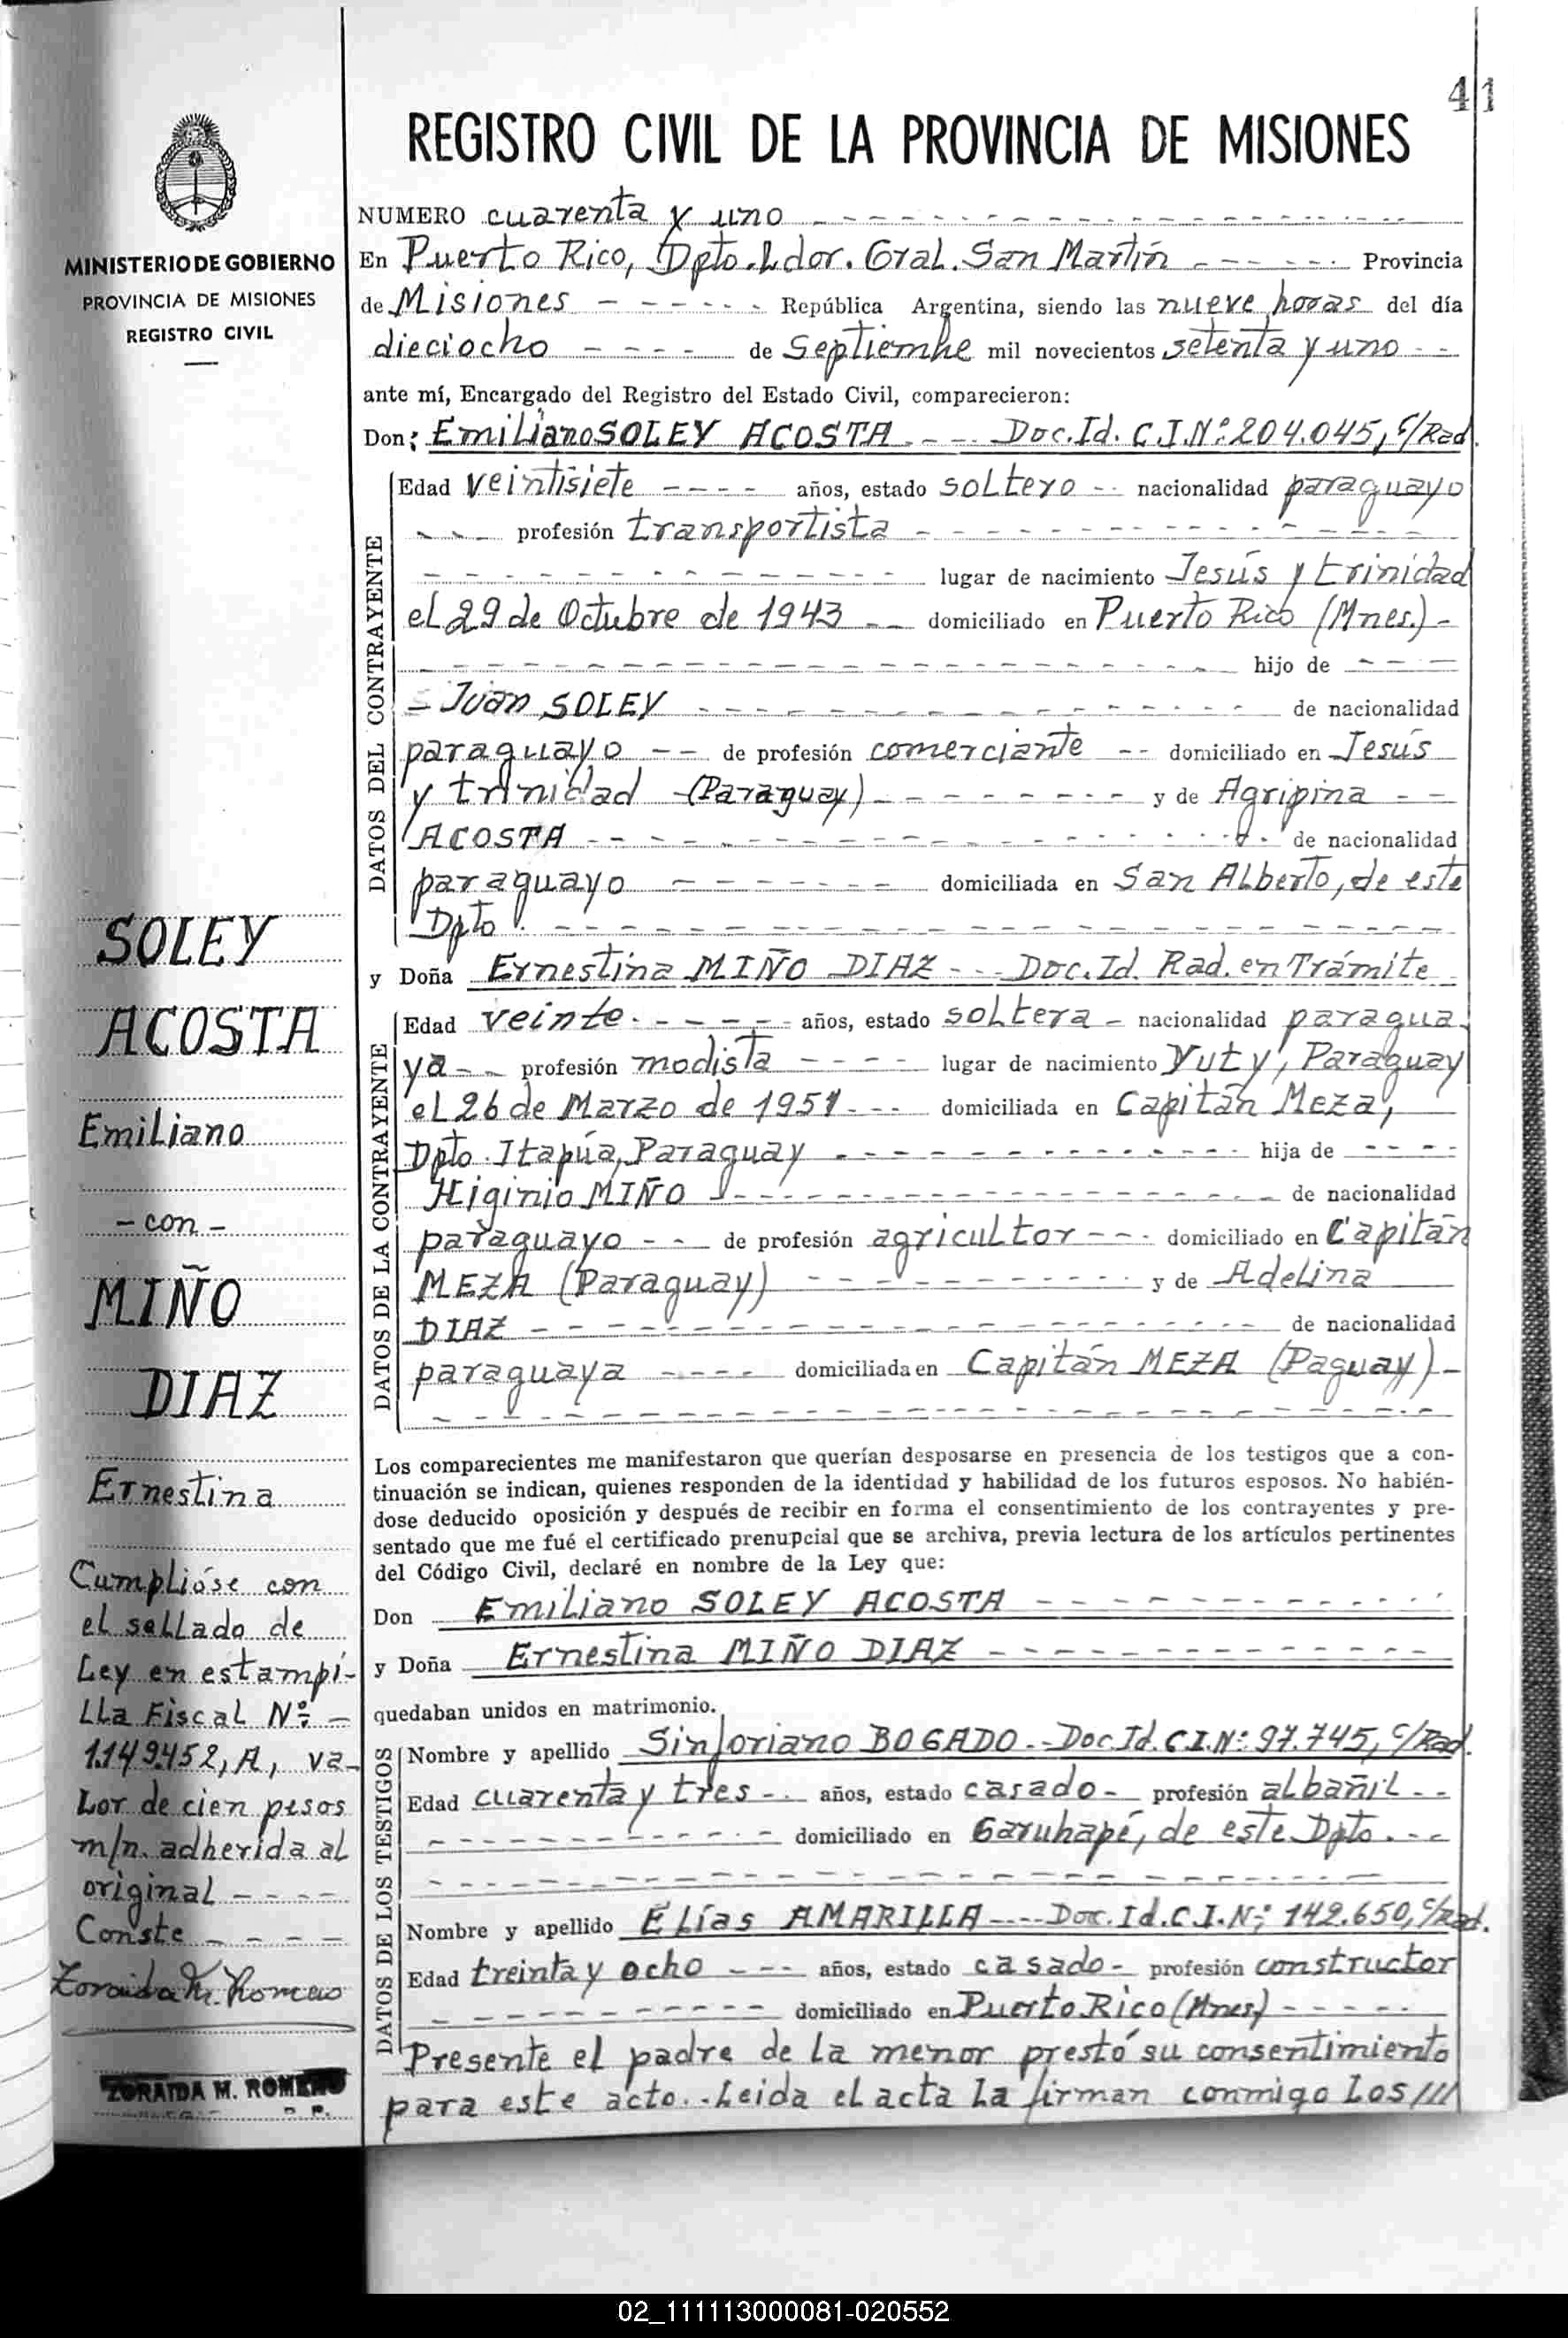 41
REGISTRO CIVIL DE LA PROVINCIA DE MISIONES
MINISTERIO DE GOBIERNO
PROVINCIA DE MISIONES
REGISTRO CIVIL
NUMERO cuarenta y uno
En Puerto Rico, Dpto. Ldor. Gral. San Martín Provincia
de Misiones República Argentina, siendo las nueve horas del día
dieciocho de Septiembre mil novecientos setenta y uno
ante mí, Encargado del Registro del Estado Civil, comparecieron:
Don: Emiliano SOLEY ACOSTA --- Doc. Id. C.I. Nº: 204.045, C/Rad.
DATOS DEL CONTRAYENTE
Edad veintisiete años, estado soltero nacionalidad paraguayo
profesión transportista
lugar de nacimiento Jesús y trinidad
el 29 de Octubre de 1943 domiciliado en Puerto Rico (Mnes.)
hijo de
Juan SOLEY de nacionalidad
paraguayo de profesión comerciante domiciliado en Jesús
y trinidad (Paraguay) y de Agripina
ACOSTA de nacionalidad
paraguayo domiciliada en San Alberto, de este
Dpto.
y Doña Ernestina MIÑO DIAZ --- Doc. Id. Rad. en Trámite
DATOS DE LA CONTRAYENTE
Edad veinte años, estado soltera nacionalidad paragua
ya profesión modista lugar de nacimiento Yuty, Paraguay
el 26 de Marzo de 1951 domiciliada en Capitán Meza,
Dpto. Itapúa, Paraguay hija de
Higinio MIÑO de nacionalidad
paraguayo de profesión agricultor domiciliado en Capitán
MEZA (Paraguay) y de Adelina
DIAZ de nacionalidad
paraguaya domiciliada en Capitán MEZA (Paguay)
Los comparecientes me manifestaron que querían desposarse en presencia de los testigos que a con-
tinuación se indican, quienes responden de la identidad y habilidad de los futuros esposos. No habién-
dose deducido oposición y después de recibir en forma el consentimiento de los contrayentes y pre-
sentado que me fué el certificado prenupcial que se archiva, previa lectura de los artículos pertinentes
del Código Civil, declaré en nombre de la Ley que:
Don Emiliano SOLEY ACOSTA
y Doña Ernestina MIÑO DIAZ
quedaban unidos en matrimonio.
DATOS DE LOS TESTIGOS
Nombre y apellido Sinforiano BOGADO -- Doc. Id. C.I. Nº: 97.745, C/Rad.
Edad cuarenta y tres años, estado casado profesión albañil
domiciliado en Garuhapé, de este Dpto.
Nombre y apellido Elías AMARILLA ---- Doc. Id. C.I. Nº: 142.650, C/Rad.
Edad treinta y ocho años, estado casado profesión constructor
domiciliado en Puerto Rico (Mnes)
Presente el padre de la menor prestó su consentimiento
para este acto. - Leida el acta la firman conmigo los ///
SOLEY
ACOSTA
Emiliano
- con -
MIÑO
DIAZ
Ernestina
Cumplióse con
el sellado de
Ley en estampi-
lla Fiscal Nº: -
1.149.452, A, va-
lor de cien pesos
m/n. adherida al
original
Conste
Zoraida M. Romero
ZORAIDA M. ROMERO
02_111113000081-020552